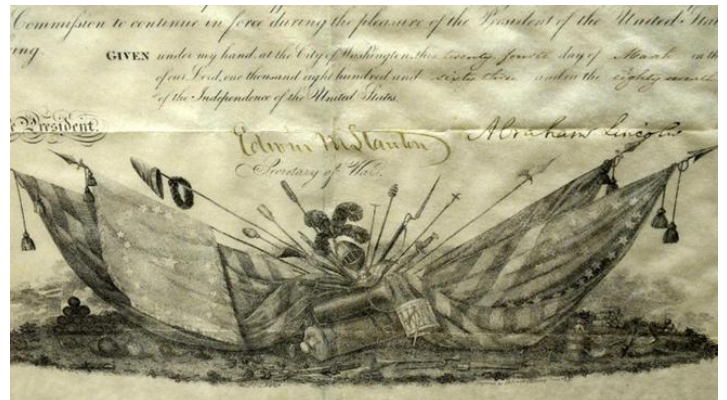 Commission to continue in force during the pleasure of the President of the United
ing.
GIVEN under my hand, at the City of Washington, this twenty fourth day of March in th
of our Lord, one thousand eight hundred and sixty three and in the eighty seventh
of the Independence of the United States.
President.
Edwin M Stanton Abraham Lincoln
Secretary of War.